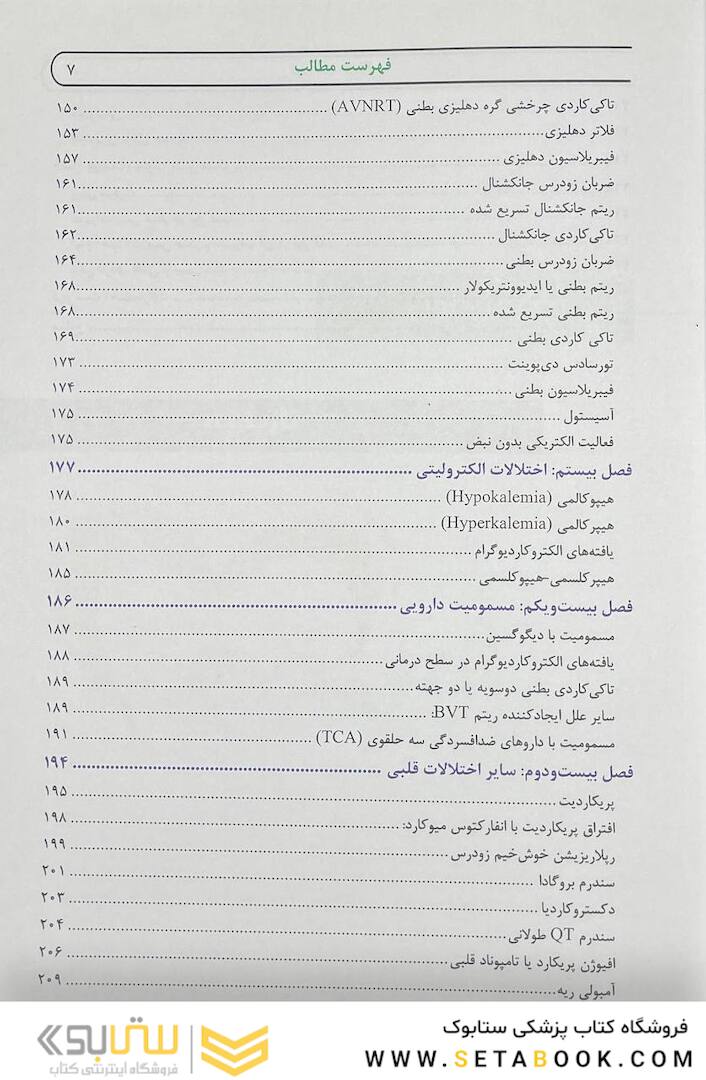 فهرست مطالب ۷
تاکی‌کاردی چرخشی گره دهلیزی بطنی (AVNRT) ۱۵۰
فلاتر دهلیزی ۱۵۳
فیبریلاسیون دهلیزی ۱۵۷
ضربان زودرس جانکشنال ۱۶۱
ریتم جانکشنال تسریع شده ۱۶۱
تاکی‌کاردی جانکشنال ۱۶۲
ضربان زودرس بطنی ۱۶۴
ریتم بطنی یا ایدیوونتریکولار ۱۶۸
ریتم بطنی تسریع شده ۱۶۸
تاکی کاردی بطنی ۱۶۹
تورسادس دی‌پوینت ۱۷۳
فیبریلاسیون بطنی ۱۷۴
آسیستول ۱۷۵
فعالیت الکتریکی بدون نبض ۱۷۵
فصل بیستم: اختلالات الکترولیتی ۱۷۷
هیپوکالمی (Hypokalemia) ۱۷۸
هیپرکالمی (Hyperkalemia) ۱۸۰
یافته‌های الکتروکاردیوگرام ۱۸۱
هیپرکلسمی-هیپوکلسمی ۱۸۵
فصل بیست‌ویکم: مسمومیت دارویی ۱۸۶
مسمومیت با دیگوگسین ۱۸۷
یافته‌های الکتروکاردیوگرام در سطح درمانی ۱۸۸
تاکی‌کاردی بطنی دوسویه یا دو جهته ۱۸۹
سایر علل ایجادکننده ریتم BVT: ۱۸۹
مسمومیت با داروهای ضدافسردگی سه حلقوی (TCA) ۱۹۱
فصل بیست‌ودوم: سایر اختلالات قلبی ۱۹۴
پریکاردیت ۱۹۵
افتراق پریکاردیت با انفارکتوس میوکارد: ۱۹۸
رپلاریزیشن خوش‌خیم زودرس ۱۹۹
سندرم بروگادا ۲۰۱
دکستروکاردیا ۲۰۳
سندرم QT طولانی ۲۰۴
افیوژن پریکارد یا تامپوناد قلبی ۲۰۶
آمبولی ریه ۲۰۹
فروشگاه کتاب پزشکی ستابوک
WWW.SETABOOK.COM
ستابوک
فروشگاه اینترنتی کتاب